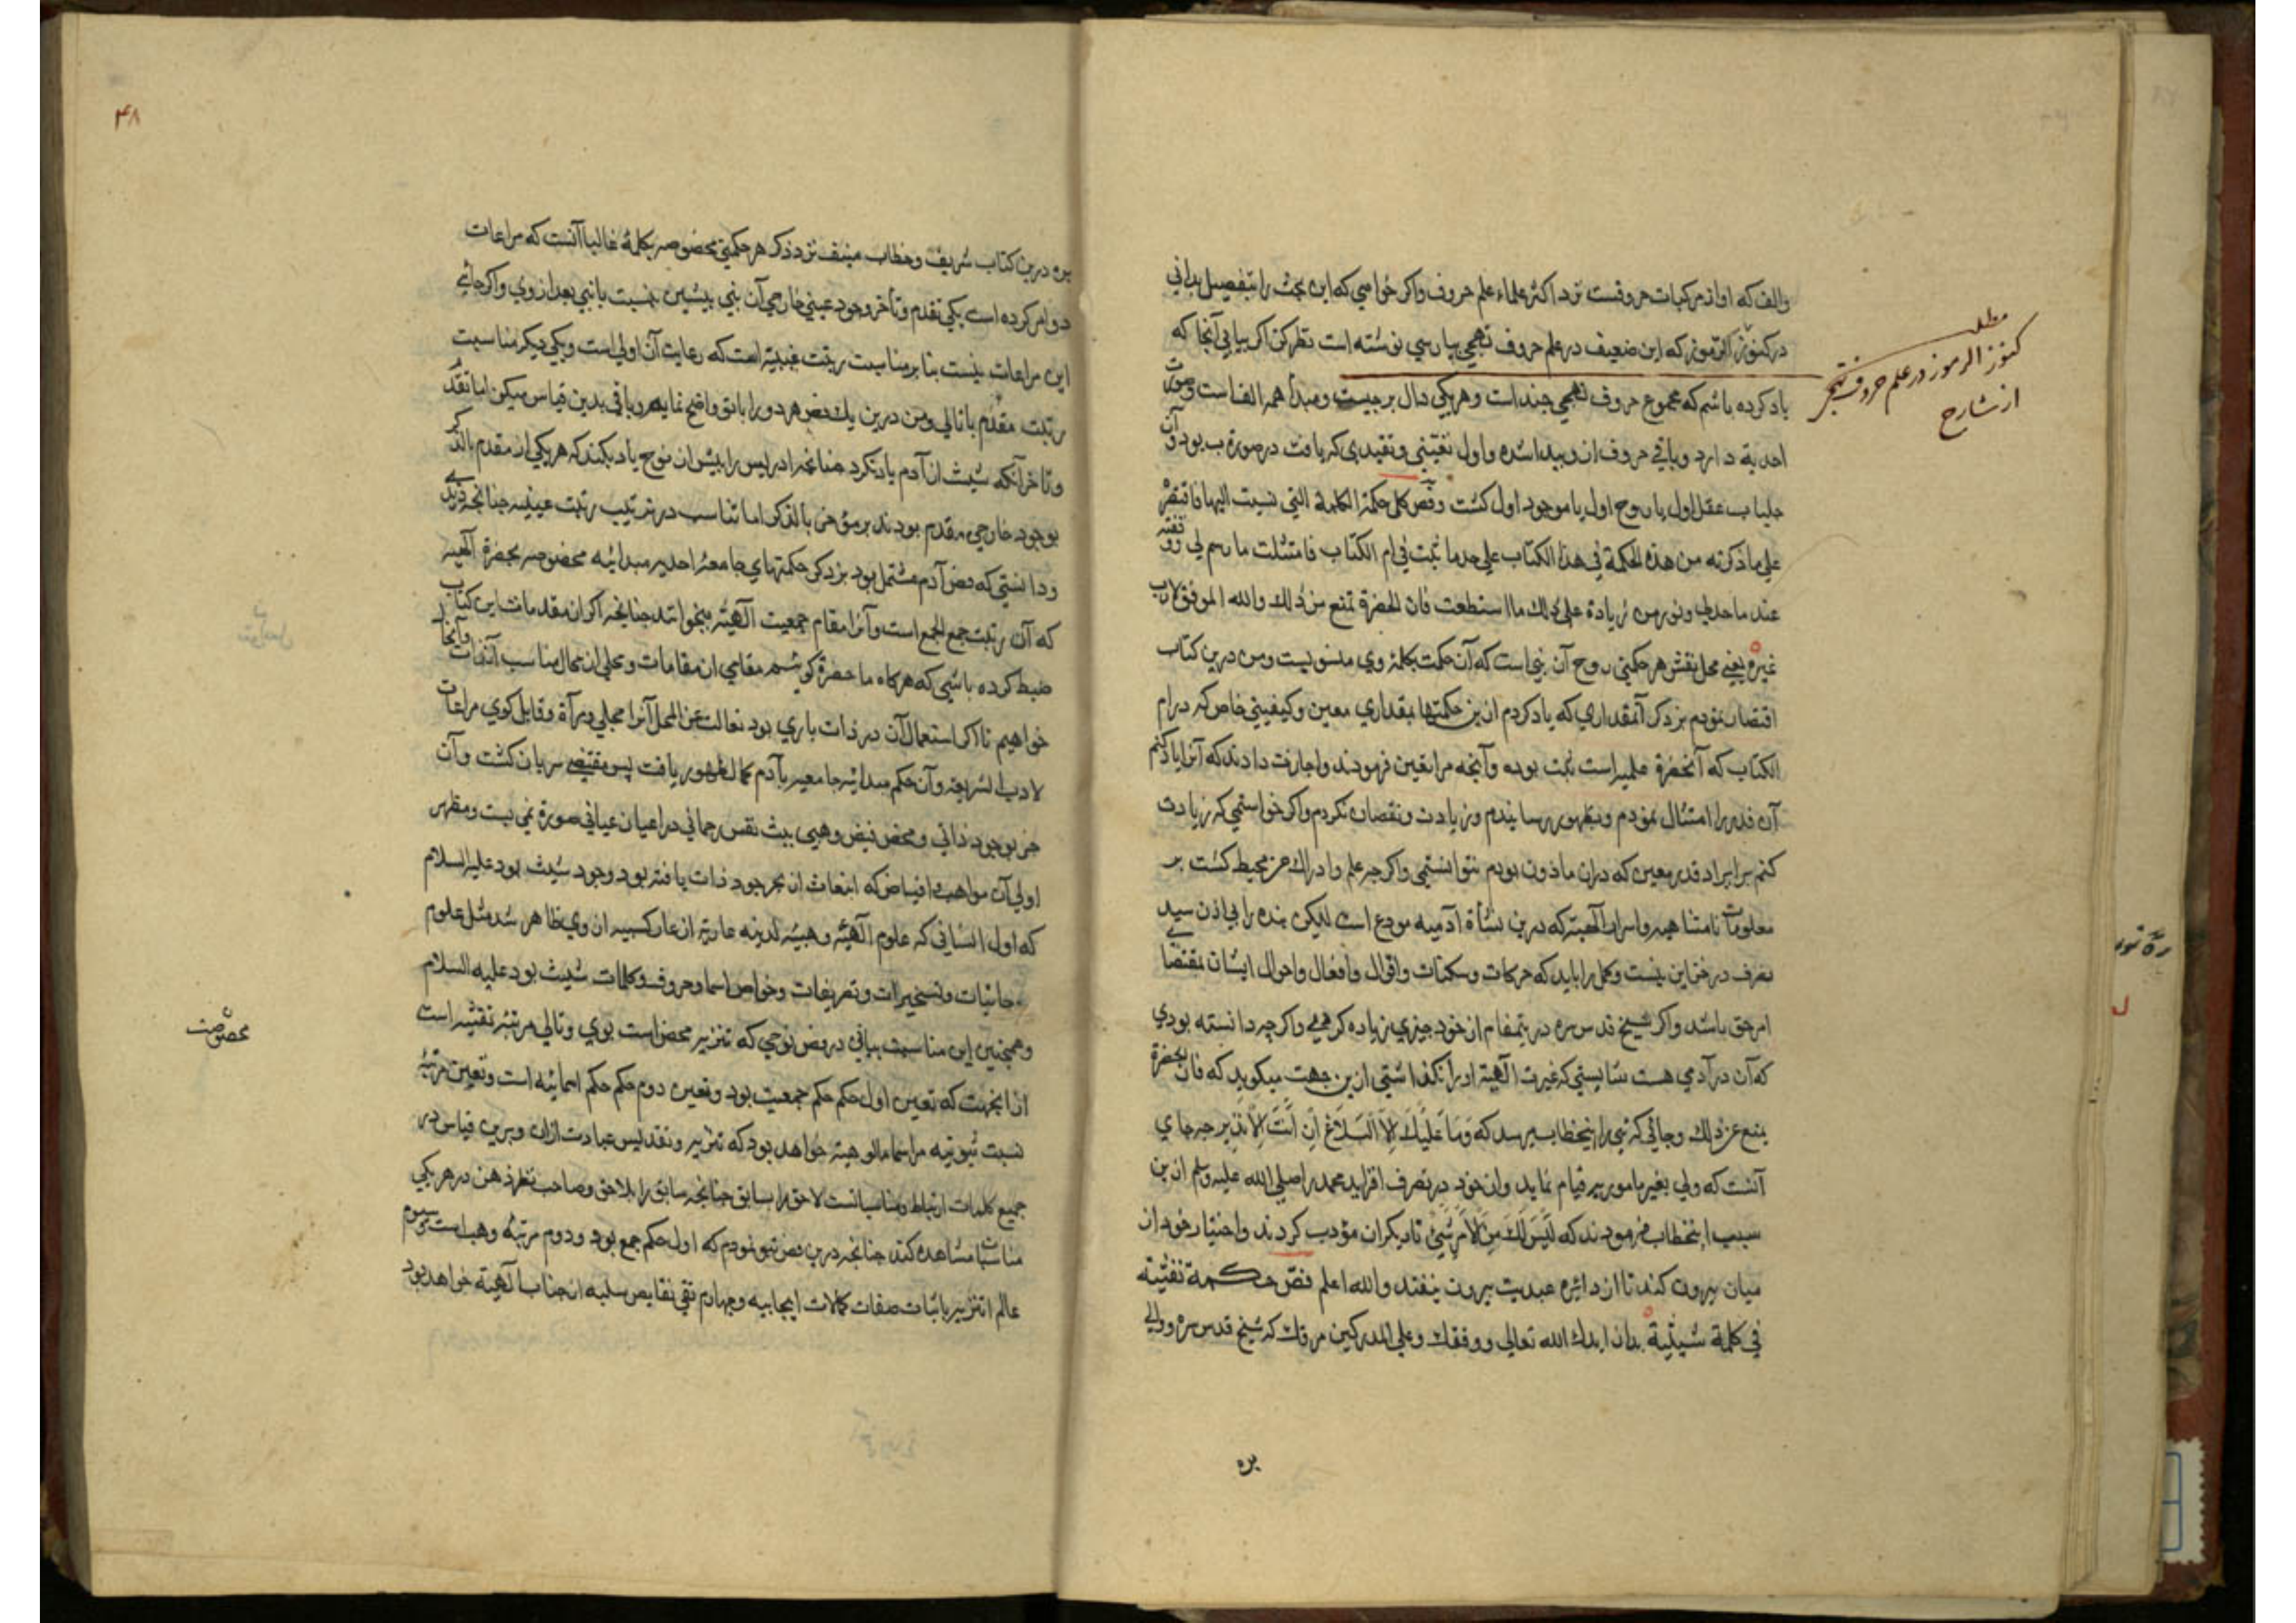 والف که او از مرکبات حروفست نزد اکثر علماء علم حروف واکر خواهی که این بحث را بتفصیل بدانی
در کنوز الرموز که این ضعیف در علم حروف تهجی پارسی نوشته است نظر کن اکر بیابی آنجا که
یاد کرده باشم که مجموع حروف تهجی چند است و هر یکی دال بر چیست و مبدأ همه الف است وصورت
احدیة دارد و باقی حروف از و پیدا شده و اول تعینی و تقیدی که یافت در صورة ب بود و آن
جلباب عقل اول یا روح اول یا موجود اول کشت وفص کل حکمة الکلمة التی نسبت الیها فاقتصرت
علی ما ذکرته من هذه الحکمة فی هذا الکتاب علی حد ما ثبت فی ام الکتاب فامتثلت ما رسم لی ووقفت
عند ما حد لی ولو رمت زیادة علی ذلك ما استطعت فان الحضرة تمنع من ذلك والله الموفق لا رب
غیره یعنی محل نقش هر حکمتی روح آن نبی است که آن حکمت بکلمهٔ وی منسوبست ومن درین کتاب
اقتصار نمودم بر ذکر آنمقداری که یاد کردم ازین حکمتها بمقداری معین وکیفیتی خاص که در ام
الکتاب که آنحضرة علمیراست ثبت بوده وآنچه مرا تعین فرمودند واجازت دادند که آنرا یاد کنم
آن قدر را امتثال نمودم وبظهور رسانیدم وزیادت ونقصان نکردم واکر خواستمی که زیادت
کنم بر ایراد قدر معین که دران ماذون بودم نتوانستمی واکر چه علم وادراك من محیط کشت بر
معلومات نامتناهیه واسرار الهیته که درین نشأة آدمیه مودع است لیکن بنده را بی اذن سید
تصرف در خزاین نیست وکمل را باید که حرکات وسکنات واقوال وافعال واحوال ایشان بمقتضای
امر حق باشد واکر شیخ قدس سره درینمقام از خود چیزی زیاده کردمی واکر چه دانسته بودی
که آن در آدمی هست شایستی که غیرت الهیة او را نکذاشتی ازین جهت میکوید که فان الحضرة
یمنع عن ذلك وجائی که نبی را اینخطاب میرسد که وما علیك الا البلاغ ان انت الا نذیر چه جای
آنست که ولی بغیر مامور به قیام نماید واز خود در تصرف افزاید محمد را صلی الله علیه وسلم ازین
سبب اینخطاب فرمودند که لیس لك من الامر شیئ تا دیکران مؤدب کردند واختیار خود از
میان بیرون کنند تا از دائره عبدیت بیرون نیفتند والله اعلم فص حکمة نفثیة
فی کلمة شیثیة بدان ایدك الله تعالی ووفقك وعلی المدرکین مرقاك که شیخ قدس سره والی
بره
مطلب
کنوز الرموز در علم حروف تهجی
از شارح
۴۸
بره درین کتاب شریف وخطاب منیف نزد ذکر هر حکمتی مخصوصه بکلمهٔ غالبا آنست که مراعات
دو امر کرده است یکی تقدم وتأخر وجود عینی خارجی آن نبی پیشین بنسبت با نبی بعد از وی واکر جائی
این مراعات نیست بنا بر مناسبت رتبت غیبیة است که رعایت آن اولی است ویکی دیکر مناسبت
رتبت مقدم با تالی ومن درین یك فص هر دو را بابق واضح نمایم وباقی بدین قیاس میکن اما تقدم
وتاخر آنکه شیث از آدم یاد نکرد چنانچه ادریس را پیش از نوح یاد بکند که هر یکی از مقدم بالذکر
بوجود خارجی مقدم بودند بر مؤخر بالذکر اما تناسب در ترتیب رتبت عینیه چنانچه دیدی
ودانستی که فص آدم مشتمل بود بر ذکر حکمتهای جامعهٔ احدیه مبدائیه مخصوصه بحضرة الهیه
که آن رتبت جمع الجمع است وآنرا مقام جمعیت الهیه میخوانند چنانچه اکر از مقدمات این کتاب
ضبط کرده باشی که هرکاه ما حضرة کوئیم مقامی از مقامات ومحلی از محال مناسب آنذات وآنجا
خواهیم تا اکر استعمال آن در ذات باری بود تعالت عن المحل آنرا مجلی ومرآة وقابل کوی مراعات
لادب الشریعه وآن حکم مبدائیه جامعیه بآدم کمال ظهور یافت پس مقتضی سریان کشت وآن
جز بوجود ذاتی ومحض فیض وهبی ببث نفس رحمانی در اعیان عیانی صورة نمی بست ومظهر
اولی آن مواهب افیاض که انبعاث از بحر جود ذات یافته بود وجود شیث بود علیه السلام
که اول انسانی که علوم الهیه وهبیه لدنیه عاریه از عار کسبیه از وی ظاهر شد مثل علوم
روحانیات وتسخیرات وتعریفات وخواص اسما وحروف وکلمات شیث بود علیه السلام
وهمچنین این مناسبت بیانی در فص نوحی که تنزیه محض است بوی وتالی مرتبهٔ نفثیه است
از اینجهت که تعین اول حکم حکم جمعیت بود وتعین دوم حکم حکم اسمائیه است وتعین مرتبهٔ
نسبت ثبوتیه مر اسما مالوهیته خواهد بود که تنزیه وتقدیس عبادت ازان وبرین قیاس در
جمیع کلمات ارتباط ومناسباتست لاحق را بسابق چنانچه سابق را بلاحق وصاحب نظر ذهن در هر یکی
مناسبات مشاهده کند چنانچه درین فص تو نمودم که اول حکم جمع بود ودوم مرتبهٔ وهب است وسیوم
عالم تنزیه باثبات صفات کمالات ایجابیه وچهارم نفی نقایص سلبیه از جناب الهیة خواهد بود
مخصوصت